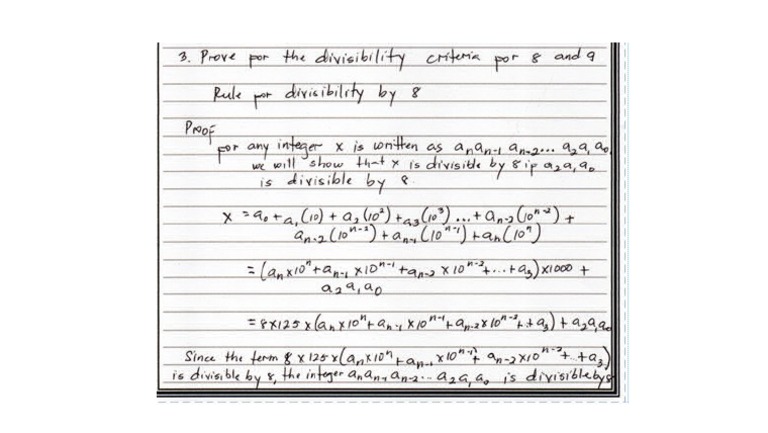 3. Prove for the divisibility criteria for 8 and 9
Rule for divisibility by 8
Proof
for any integer x is written as aₙaₙ₋₁ aₙ₋₂... a₂a₁a₀,
we will show that x is divisible by 8 if a₂a₁a₀
is divisible by 8.
x = a₀ + a₁(10) + a₂(10²) + a₃(10³) ... + aₙ₋₂(10ⁿ⁻²) +
aₙ₋₂(10ⁿ⁻²) + aₙ₋₁(10ⁿ⁻¹) + aₙ(10ⁿ)
= (aₙx10ⁿ + aₙ₋₁x10ⁿ⁻¹ + aₙ₋₂x10ⁿ⁻² + ... + a₃)x1000 +
a₂a₁a₀
= 8x125x(aₙx10ⁿ + aₙ₋₁x10ⁿ⁻¹ + aₙ₋₂x10ⁿ⁻² + .. + a₃) + a₂a₁a₀
Since the term 8x125x(aₙx10ⁿ + aₙ₋₁x10ⁿ⁻¹ + aₙ₋₂x10ⁿ⁻² + .. + a₃)
is divisible by 8, the integer aₙaₙ₋₁aₙ₋₂... a₂a₁a₀ is divisible by 8